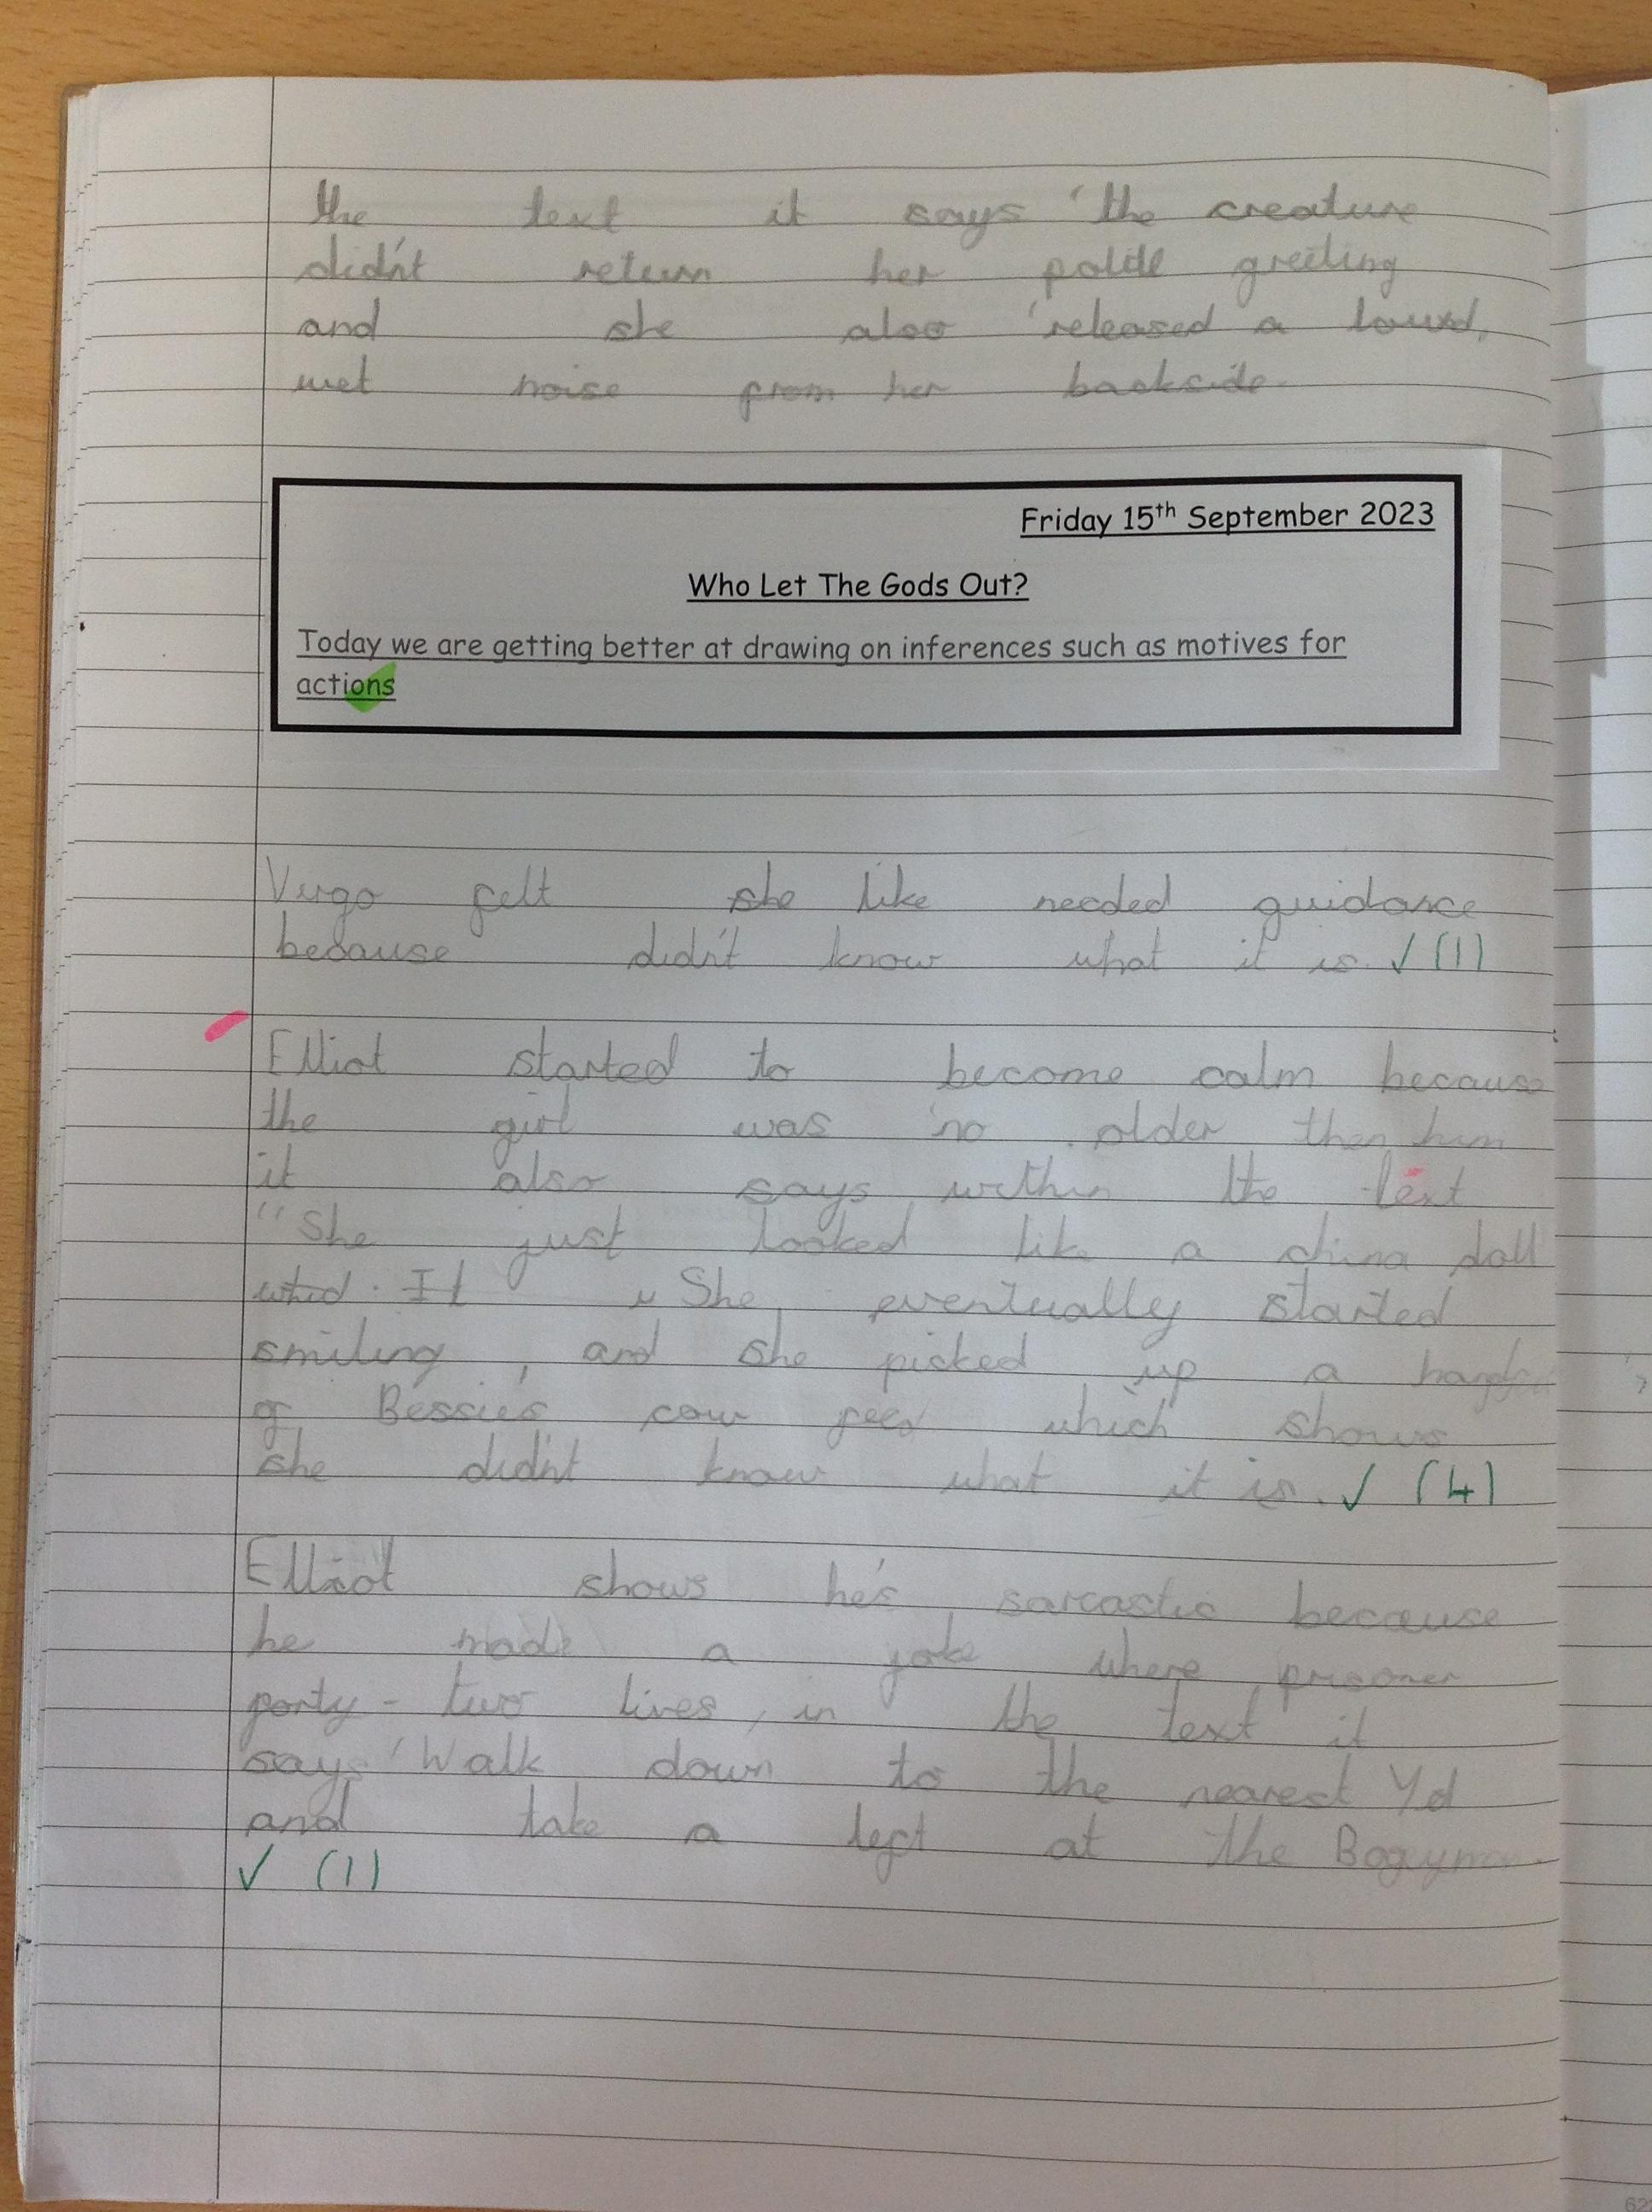 the text it says 'the creature
didn't return her polite greeting
and she also 'released a loud,
wet noise from her backside.
Friday 15th September 2023
Who Let The Gods Out?
Today we are getting better at drawing on inferences such as motives for
actions
Virgo felt she like needed guidance
because didn't know what it is. ✓ (1)
Elliot started to become calm because
the girl was 'no older then him
it also says within the text
"She just looked like a china doll
It She eventually started
smiling, and she picked up a
of Bessie's cow feed which shows
she didn't know what it is. ✓ (4)
Elliot shows he's sarcastic because
he made a joke where prisoner
forty-two lives, in the text it
says 'Walk down to the nearest
and take a left at the Bogyman.
✓ (1)